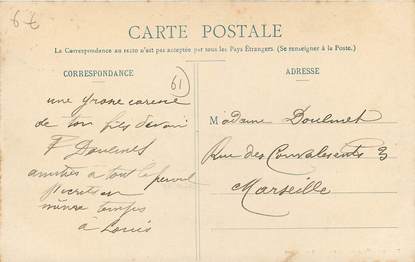 6€
CARTE POSTALE
La Correspondance au recto n'est pas acceptée par tous les Pays Étrangers. (Se renseigner à la Poste.)
CORRESPONDANCE
61
ADRESSE
une
de ton fils
F Doulmet
amitiés a tout le
temps
à Louis
Madame Doulmet
Rue des Convalescents 3
Marseille